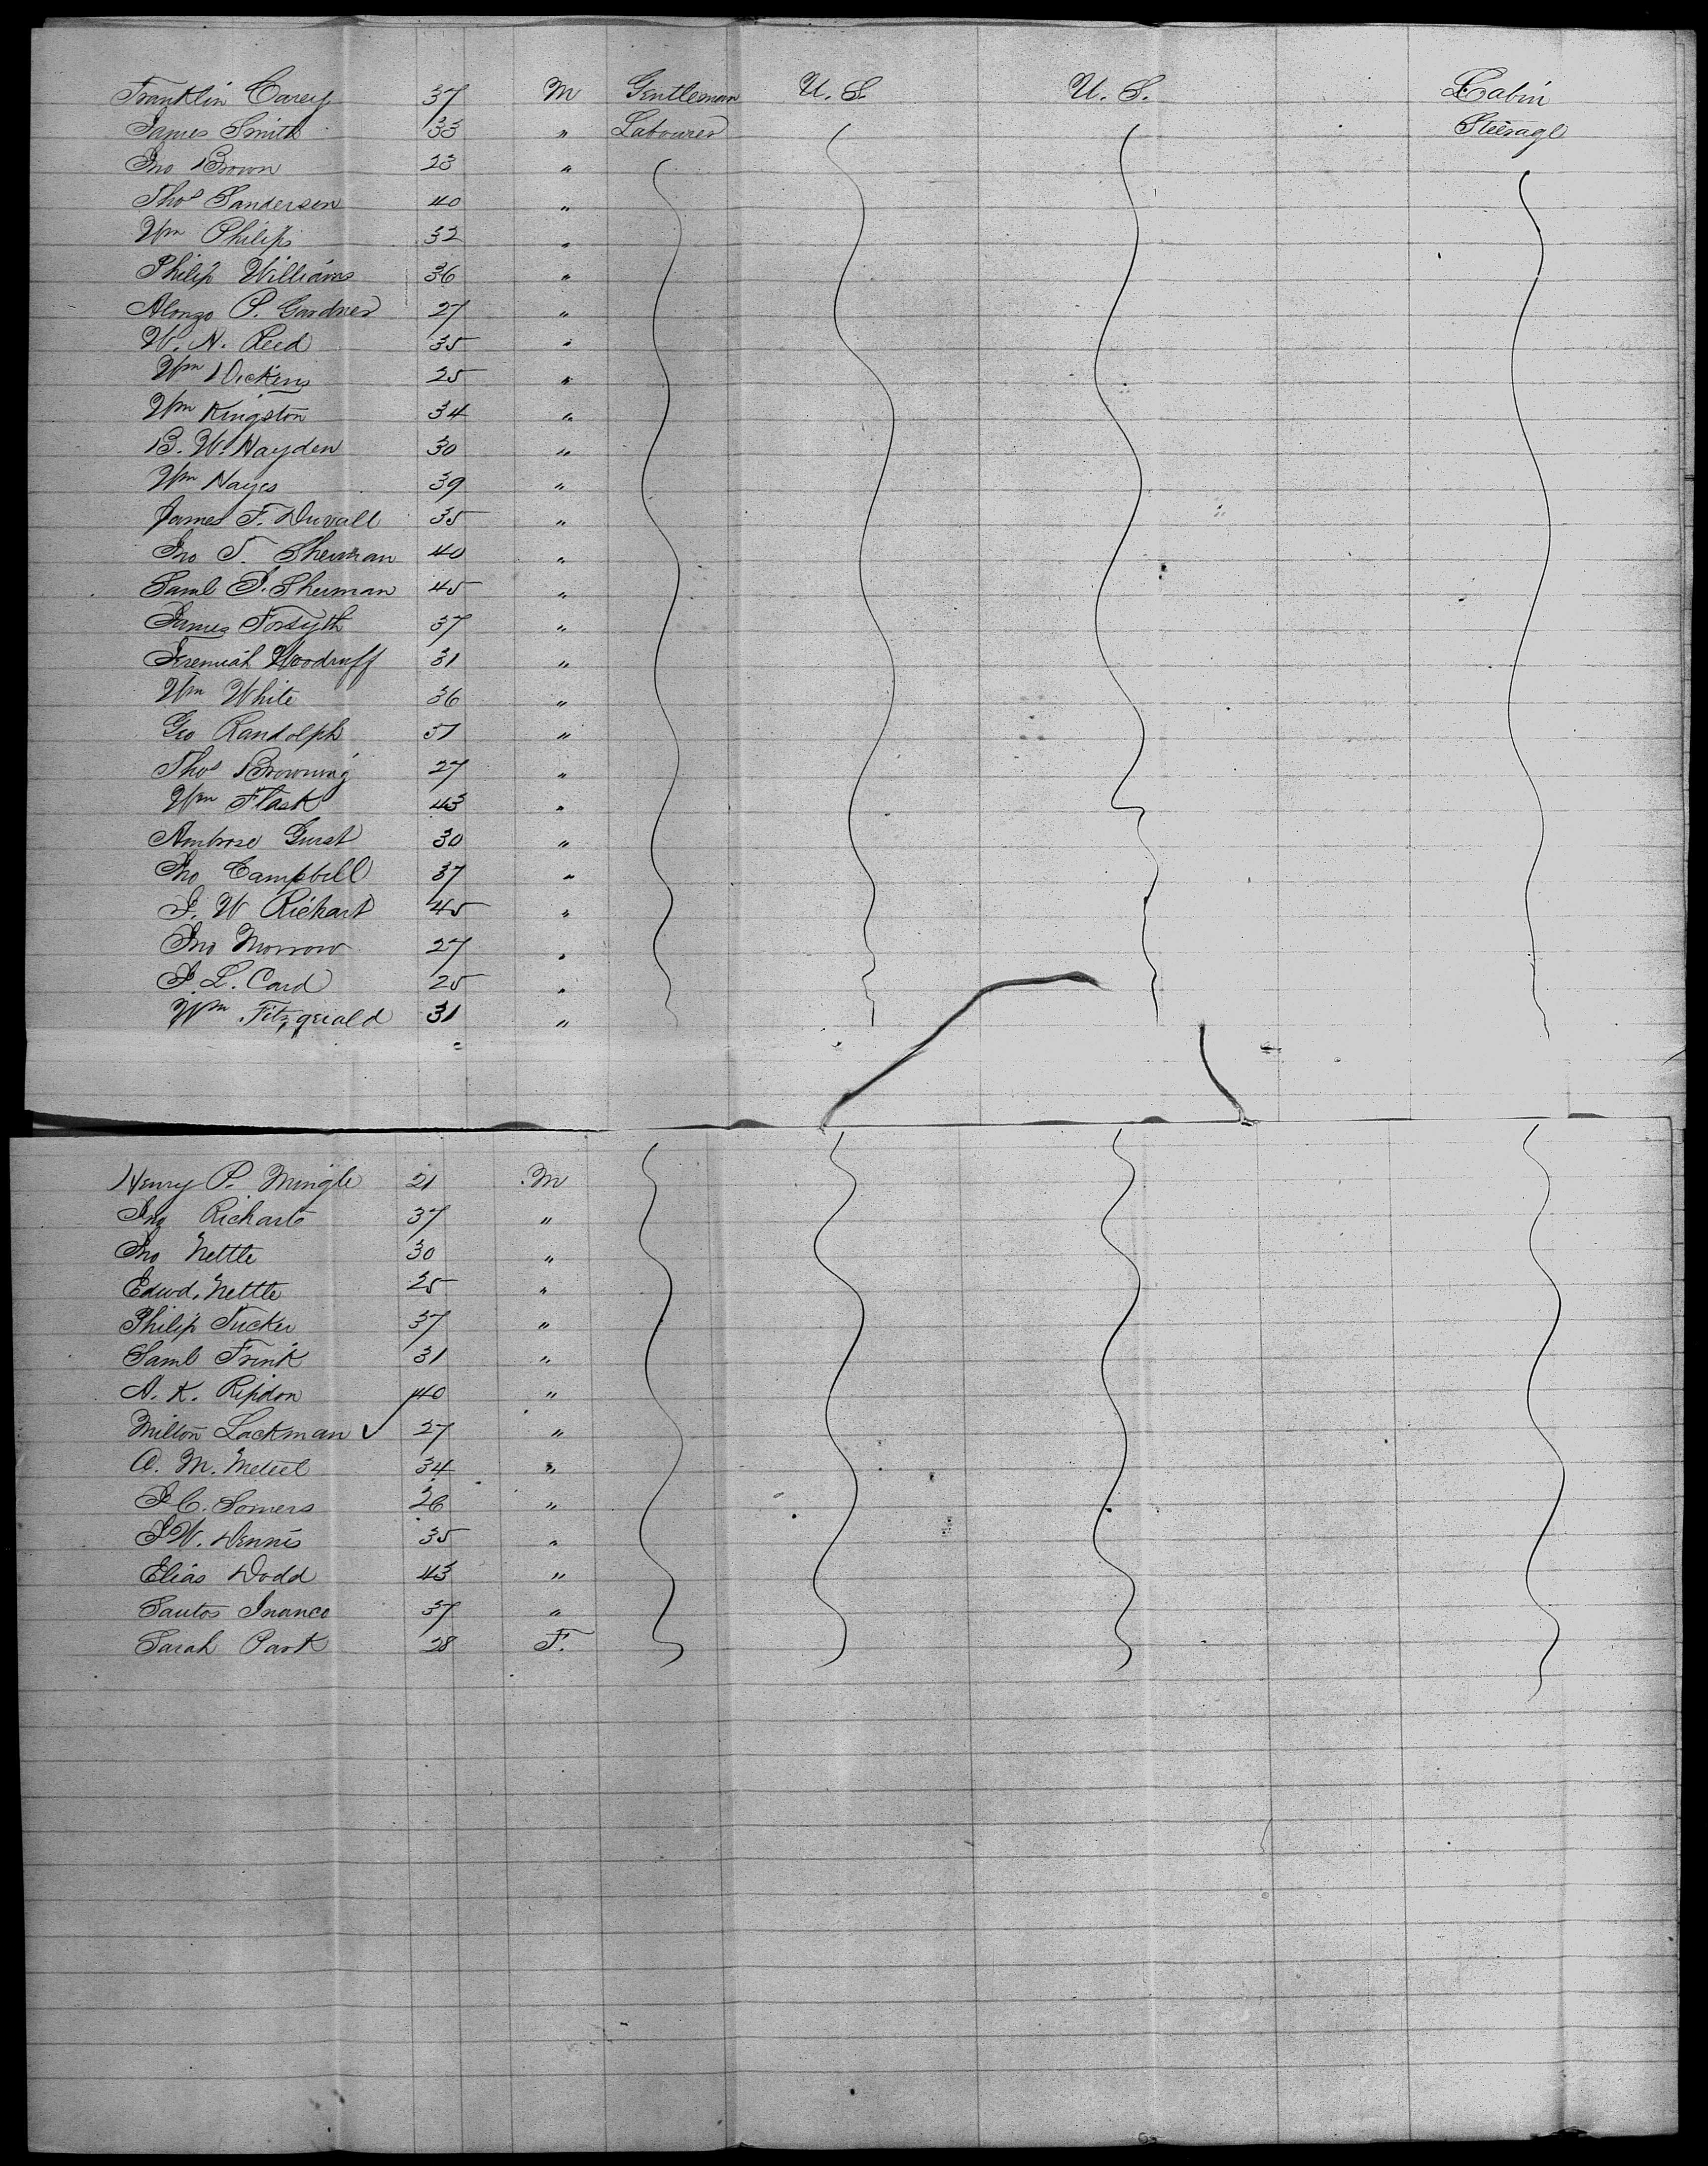 Franklin Carey 37 M Gentleman U. S. U. S. Cabin
James Smith 33 " Labourer Steerage
Jno Brown 23 "
Thos Sanderson 40 "
Wm Philips 32 "
Philip Williams 36 "
Alonzo P. Gardner 27 "
W. N. Reed 35 "
Wm Dickens 25 "
Wm Kingston 34 "
B. W. Hayden 30 "
Wm Hayes 39 "
James F. Duvall 35 "
Jno T. Sherman 40 "
Saml S. Sherman 45 "
James Forsyth 37 "
Jeremiah Woodruff 31 "
Wm White 36 "
Geo Randolph 51 "
Thos Browning 27 "
Wm Flask 43 "
Ambrose Gurst 30 "
Jno Campbell 37 "
J. W Richart 45 "
Jno Morrow 27 "
J. L. Card 25 "
Wm Fitzgerald 31 "
Henry P. Mingle 21 M
Jno Richart 37 "
Jno Nettle 30 "
Edwd. Nettle 25 "
Philip Tucker 37 "
Saml Frink 31 "
A. K. Ripdon 40 "
Milton Lackman 27 "
A. M. 34 "
J. C. Somers 26 "
J W. Dennis 35 "
Elias Dodd 43 "
Santos 37 "
Sarah Park 28 F.